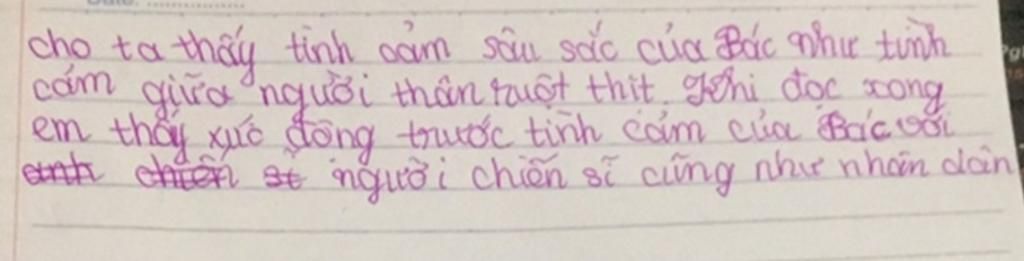 cho ta thấy tình cảm sâu sắc của Bác như tình
cảm giữa người thân ruột thịt. Khi đọc xong
em thấy xúc động trước tình cảm của Bác với
anh chiến sĩ người chiến sĩ cũng như nhân dân